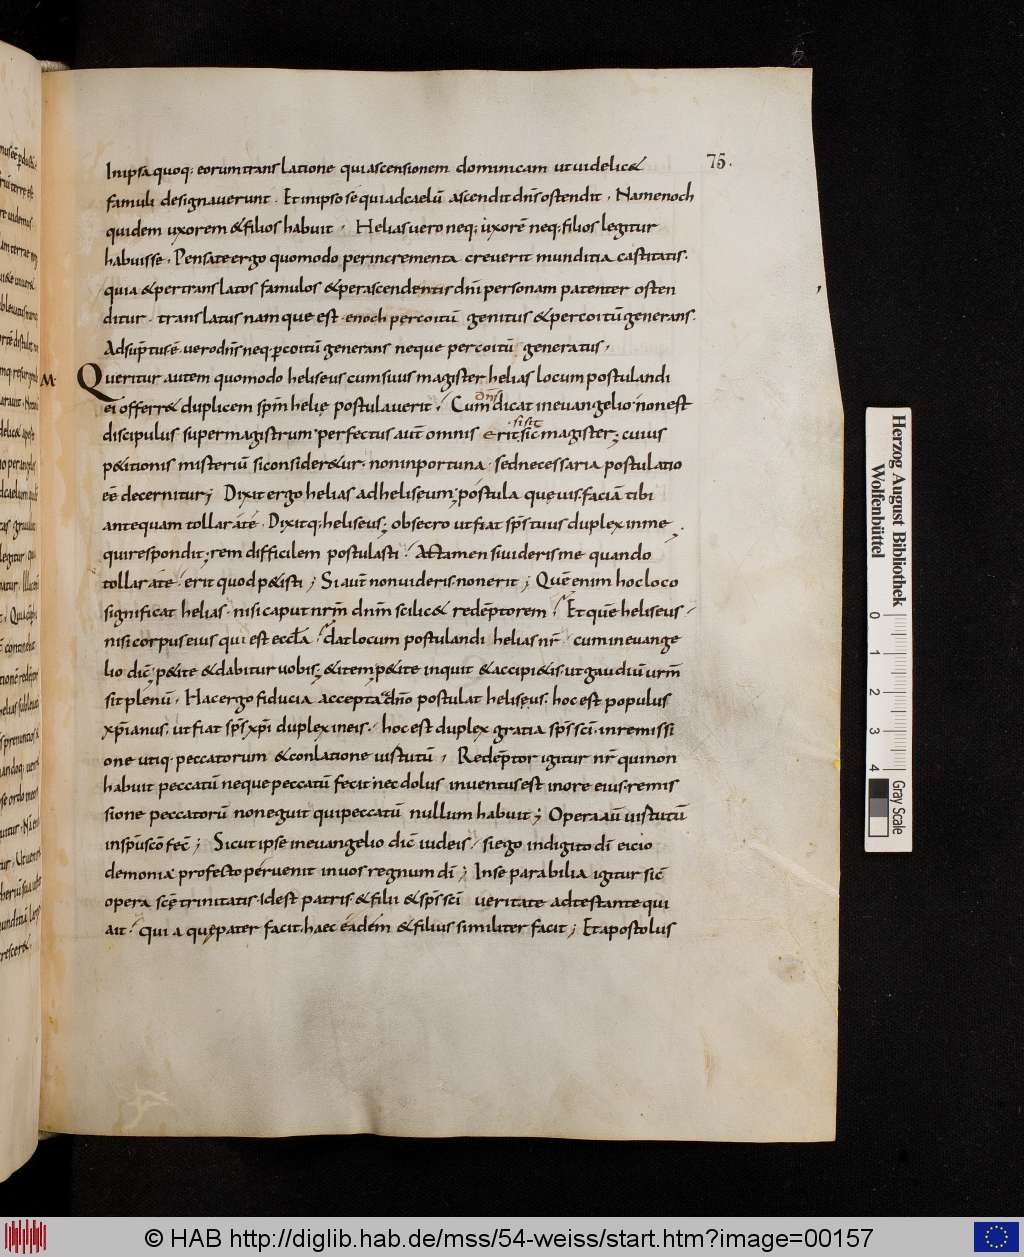 75.
In ipsa quoq; eorum translatione qui ascensionem dominicam ut uidelic&
famuli designauerunt . Et in ipso se qui ad caelū ascendit dn̄s ostendit . Nam enoch
quidem uxorem & filios habuit . Helias uero neq; uxorē neq; filios legitur
habuisse . Pensate ergo quomodo per incrementa creuerit munditia castitatis .
quia & per translatos famulos & per ascendentis dn̄i personam patenter osten
ditur . translatus namque est . enoch per coitū genitus & per coitū generans .
Adsūptus ē . uero dn̄s neq. p coitū generans neque per coitū generatus .
M.
Queritur autem quomodo heliseus cum suus magister helias locum postulandi
ei offerr& duplicem sp̄m helię postulauerit . Cum dn̄s dicat in euangelio non est
discipulus super magistrum perfectus aut̄ omnis erit si sit sic magister ; cuius
p&itionis misteriū si consider&ur . non inportuna . sed necessaria postulatio
eē decernitur ; Dixit ergo helias ad heliseum ; postula que uis faciā tibi
antequam tollar a te . Dixitq; heliseus ; obsecro ut fiat sp̄s tuus duplex in me .
qui respondit ; rem difficilem postulasti . Attamen si uideris me quando
tollar a te erit quod p&isti ; Si aut̄ non uideris non erit ; Quē enim hoc loco
significat helias . nisi caput nr̄m dn̄m scilic& redēptorem . Et quē heliseus .
nisi corpus eius qui est eccl̄a . dat locum postulandi helias nr̄ . cum in euange
lio dic̄ ; p&ite & dabitur uobis ; & item p&ite inquit & accipi&is . ut gaudiū ur̄m
sit plenū . Hac ergo fiducia accepta a dn̄o postulat helisęus . hoc est populus
xp̄ianus . ut fiat sp̄s xp̄i duplex in eis . hoc est duplex gratia sp̄s sc̄i . in remissi
one utiq. peccatorum & conlatione uirtutū . Redēptor igitur nr̄ qui non
habuit peccatū neque peccatū fecit nec dolus inuentus est in ore eius . remis
sione peccatorū non eguit qui peccatū nullum habuit ; Opera aū uirtutū
in sp̄u sc̄o fec̄ ; Sicut ipse in euangelio dic̄ iudeis . si ego in digito dī eicio
demonia profecto peruenit in uos regnum dī ; Inseparabilia igitur sic̄
opera sc̄ę trinitatis . id est patris . & filii & sp̄s sc̄i ueritate adtestante qui
ait . Qui a quę pater facit . haec eadem & filius similiter facit ; Et apostolus
Herzog August Bibliothek
Wolfenbüttel
0 1 2 3 4
Gray Scale
© HAB http://diglib.hab.de/mss/54-weiss/start.htm?image=00157